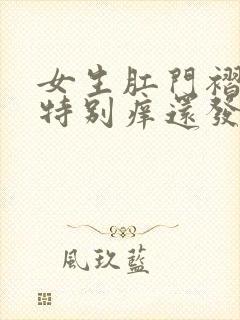 女生肛門褶
特别痒還發
風玖藍